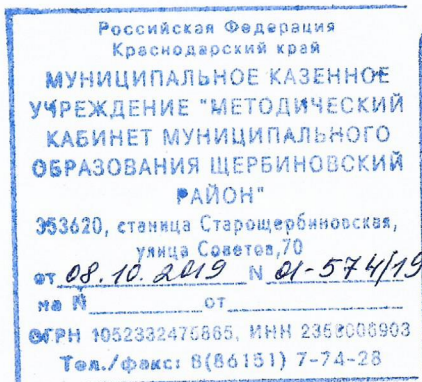 Российская Федерация
Краснодарский край
МУНИЦИПАЛЬНОЕ КАЗЕННОЕ
УЧРЕЖДЕНИЕ "МЕТОДИЧЕСКИЙ
КАБИНЕТ МУНИЦИПАЛЬНОГО
ОБРАЗОВАНИЯ ЩЕРБИНОВСКИЙ
РАЙОН"
353620, станица Старощербиновская,
улица Советов,70
от 08.10.2019 N 01-574/19
на N от
ОГРН 1052332475865, ИНН
Тел./факс: 8(86151) 7-74-28